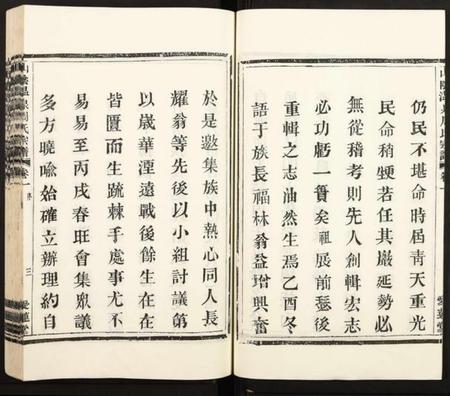 仍民不堪命時屆青天重光
民命稍甦若任其巖延勢必
無從稽考則先人創輯宏志
必功虧一簣矣祖展前瑟後
重輯之志油然生焉乙酉冬
語于族長福林翁益增興奮
於是邀集族中熱心同人長
耀翁等先後以小組討議第
以歲華湮遠戰後餘生在在
皆匱而生疏棘手處事尤不
易易至丙戌春旺會集眾議
多方曉喻始確立辦理約自
卷一
序
三
愛蓮堂